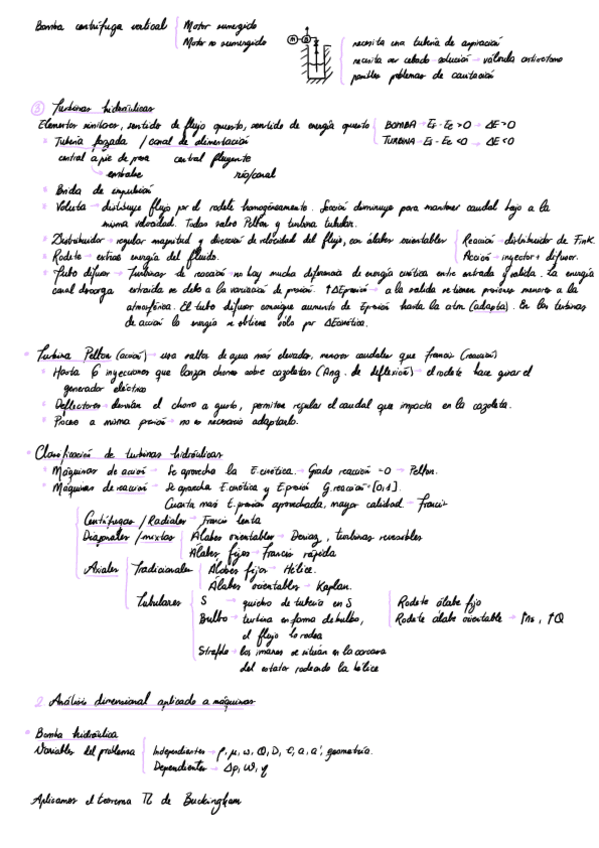 Bomba centrífuga vertical { Motor sumergido
Motor no sumergido → necesita una tubería de aspiración
necesita ser cebado → solución → válvula antirretorno
posibles problemas de cavitación
③ Turbinas hidráulicas
Elementos similares, sentido de flujo opuesto, sentido de energía opuesto { BOMBA → Es - Ee > 0 → ΔE > 0
TURBINA → Es - Ee < 0 → ΔE < 0
Tubería forzada / canal de alimentación
central a pie de presa central fluyente
embalse río/canal
Brida de
Voluta → distribuye flujo por el rodete homogéneamente. Sección disminuye para mantener caudal bajo a la
misma velocidad. Todas salvo Pelton y turbina tubular.
Distribuidor → regular magnitud y dirección de velocidad del flujo, con álabes orientables { Reacción → distribuidor de Fink.
Acción → inyector +
Rodete → extrae energía del fluido.
Tubo difusor → Turbinas de reacción → no hay mucha diferencia de energía cinética entre entrada y salida. La energía
canal descarga extraída se debe a la variación de presión. ↑ΔEpresión → a la salida se tienen presiones menores a la
atmosférica. El tubo difusor consigue aumento de Epresión hasta la atm (adapta). En las turbinas
de acción la energía se obtiene sólo por ΔEcinética.
Turbina Pelton (acción) → usa saltos de agua más elevados, menores caudales que Francis (reacción)
Hasta 6 inyecciones que lanzan chorros sobre cazoletas (Ang. de deflexión) → el rodete hace girar el
generador eléctrico
Deflectores → desvían el chorro a gusto, permiten regular el caudal que impacta en la cazoleta.
Proceso a misma presión → no es necesario adaptarlo.
Clasificación de turbinas hidráulicas
Máquinas de acción → Se aprovecha la E.cinética. → Grado reacción = 0 → Pelton.
Máquinas de reacción → Se aprovecha E.cinética y E.presión G.reacción = [0,1].
Cuanta más E.presión aprovechada, mayor calidad → Francis
Centrífugas / Radiales → Francis lenta
Diagonales / mixtas { Álabes orientables → Deriaz, turbinas reversibles
Álabes fijos → Francis rápida
Axiales { Tradicionales { Álabes fijos → Hélice.
Álabes orientables → Kaplan.
Tubulares { S → quiebro de tubería en S { Rodete álabe fijo
Bulbo → turbina en forma de bulbo, Rodete álabe orientable → ↑ns, ↑Q
el flujo lo rodea
Straflo → los imanes se sitúan en la carcasa
del estator rodeando la hélice
2. Análisis dimensional aplicado a máquinas
Bomba hidráulica
Variables del problema { Independientes → ρ, μ, ω, Q, D, ε, a, a', geometría.
Dependientes → Δp, Ẇ, η
Aplicamos el teorema Π de Buckingham